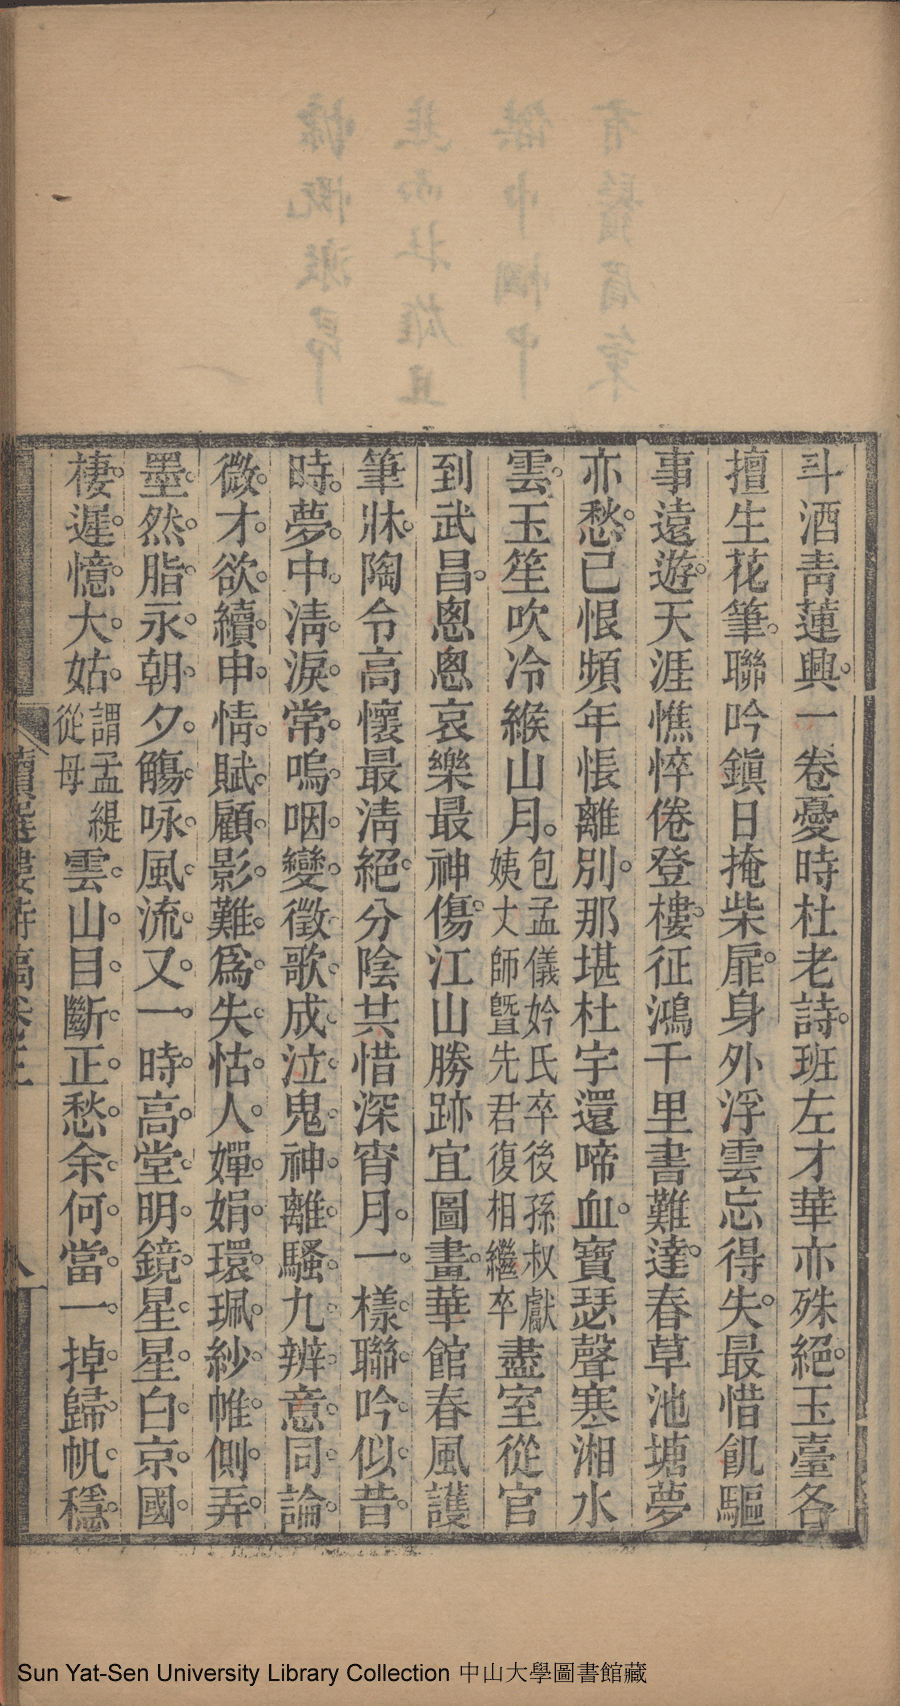 斗酒靑蓮興一卷憂時杜老詩班左才華亦殊絕玉臺各
擅生花筆聯吟鎭日掩柴扉身外浮雲忘得失最惜飢驅
事遠遊天涯憔悴倦登樓征鴻千里書難達春草池塘夢
亦愁已恨頻年悵離別那堪杜宇還啼血寶瑟聲寒湘水
雲玉笙吹冷緱山月包孟儀妗氏卒後孫叔獻姨丈師曁先君復相繼卒盡室從官
到武昌恖恖哀樂最神傷江山勝跡宜圖畫華館春風護
筆牀陶令高懷最淸絕分陰共惜深宵月一樣聯吟似昔
時夢中淸淚常嗚咽變徵歌成泣鬼神離騷九辨意同論
微才欲續申情賦顧影難爲失怙人嬋娟環珮紗帷側弄
墨然脂永朝夕觴咏風流又一時高堂明鏡星星白京國
棲遲憶大姑謂孟緹從母雲山目斷正愁余何當一掉歸帆穩
讀選樓詩稿卷三
八
Sun Yat-Sen University Library Collection 中山大學圖書館藏